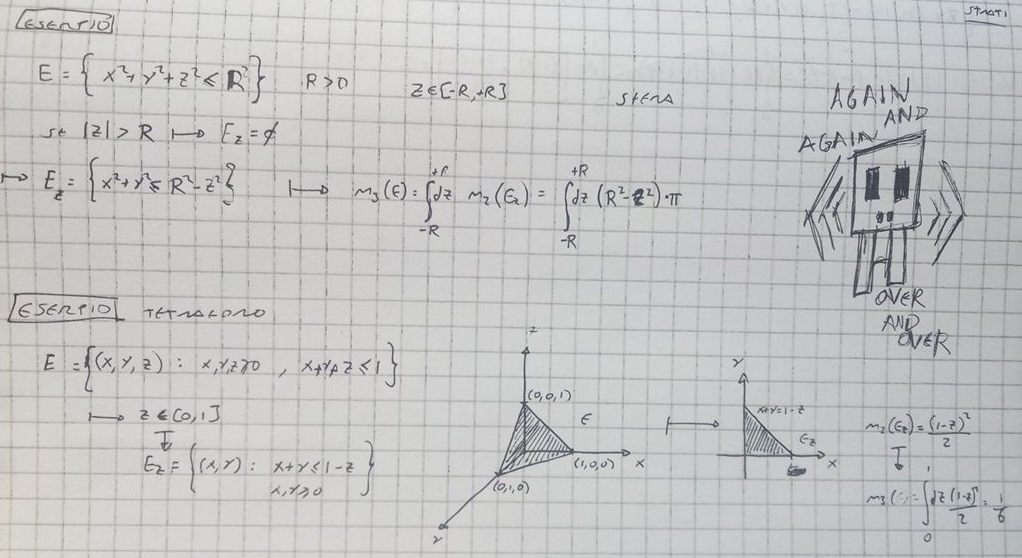 STRATI
ESERTIO
E = { x²+y²+z² ≤ R² } R>0 z∈[-R,+R] SFERA
SE |z| > R ↦ E_z = ∅
↦ E_z = { x²+y² ≤ R²-z² } ↦ m₃(E) = ∫_{-R}^{+R} dz m₂(E_z) = ∫_{-R}^{+R} dz (R²-z²)·π
AGAIN
AND
AGAIN
OVER
AND
OVER
ESERTIO TETRAEDRO
E = {(x,y,z) : x,y,z≥0 , x+y+z≤1}
↦ z∈[0,1]
E_z = {(x,y) : x+y≤1-z
x,y≥0 }
z
(0,0,1)
E
(1,0,0) x
(0,1,0)
y
y
x+y=1-z
E_z
x
m₂(E_z) = (1-z)²/2
m₃(E) = ∫_0^1 dz (1-z)²/2 = 1/6